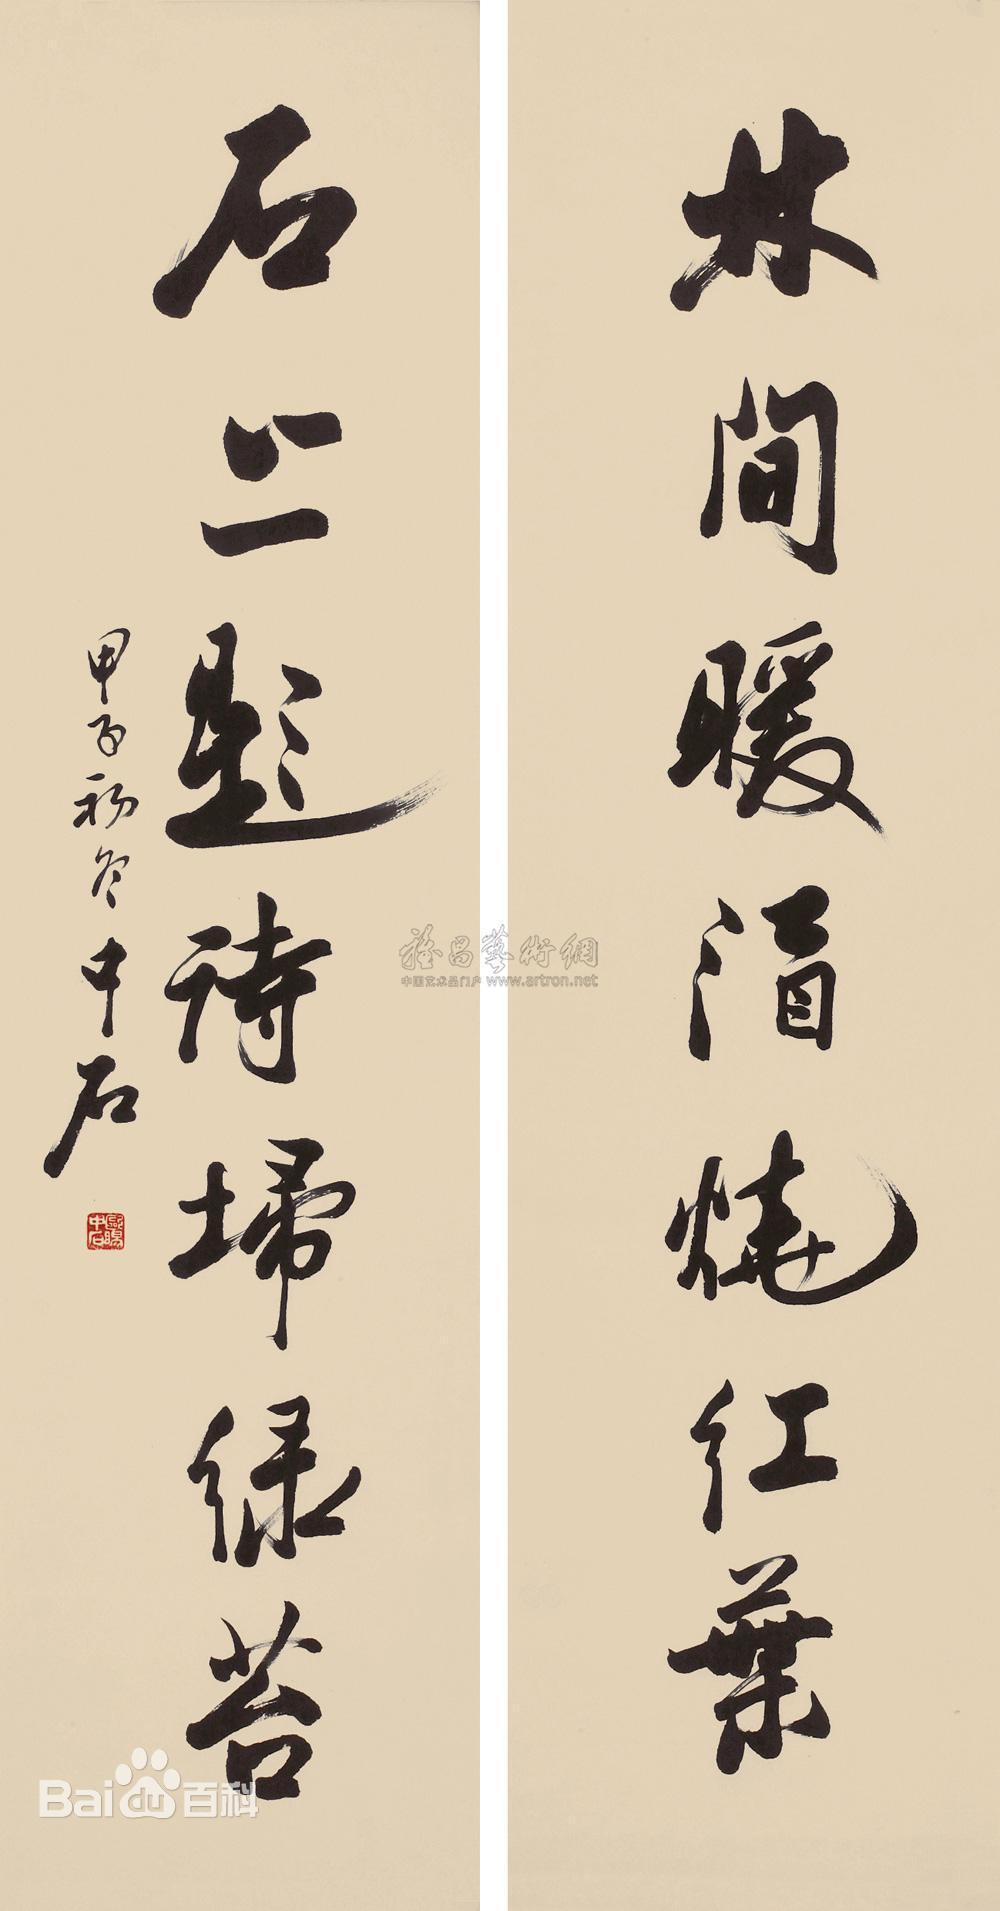 林間暖酒燒紅葉
石上題詩埽綠苔
甲子初冬中石
歐陽中石
雅昌藝術網
中国艺术品门户 www.artron.net
Bai百科